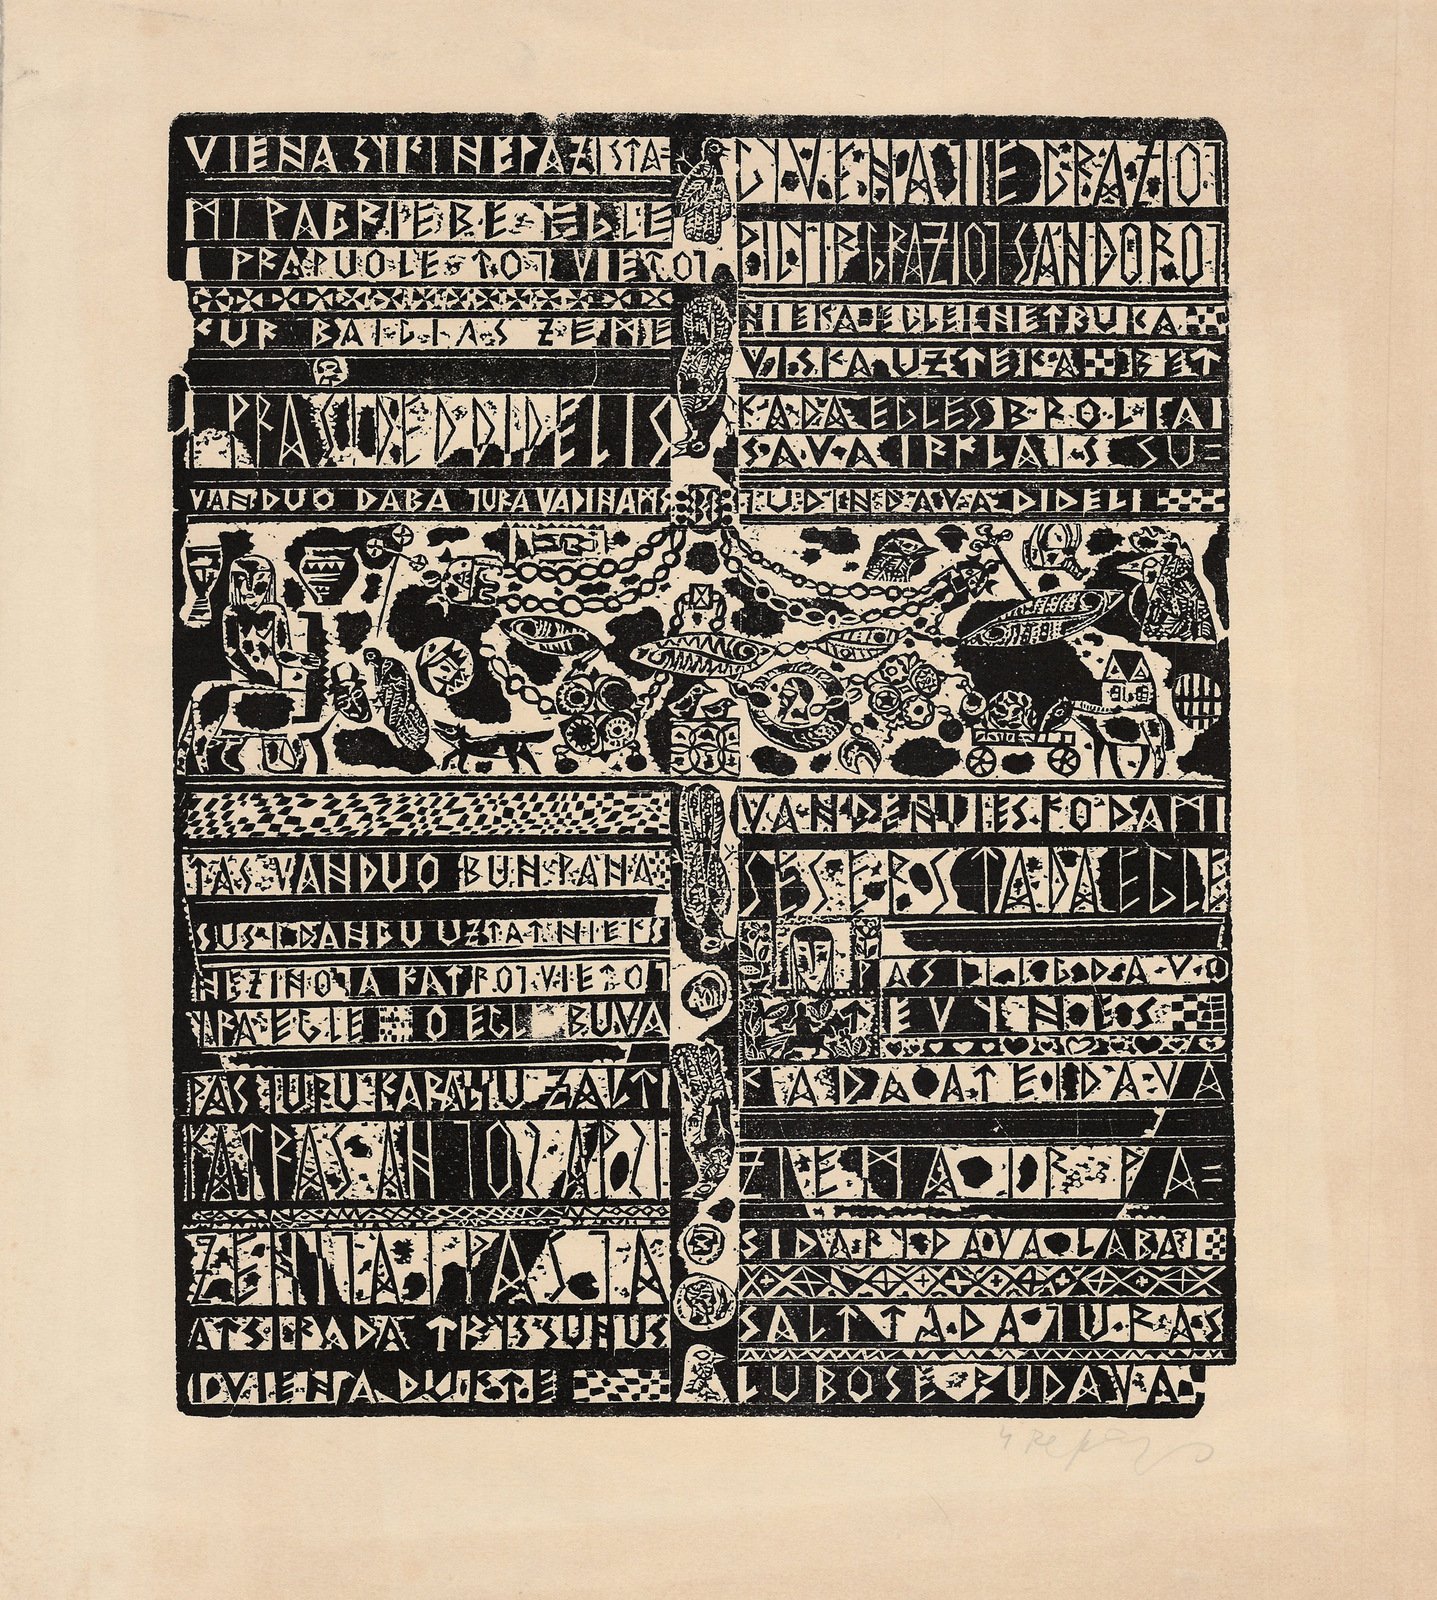 VIENA SYKI NEPAZISTA=
MI PAGRIEBE EGLE
PRAPUOLE TOJ VIETOJ
KUR BAIGIAS ZEME
PRASIDED DIDELIS
VANDUO DABA JURA VADINAMS
TAS VANDUO BUN PANA
SUS I DANGU UZTAT NIEKS
NEZINOJA KATROJ VIETOJ
YRA EGLE O EGL BUVA
PAS JURU KARALIU ZALT
KATRAS AN
ZENIJA I PASJA
ATSIRADA TRIS SUNUS
I VIENA DUKTE
GYVENA JIE GRAZIOJ
PILYJ IR GRAZIOJ SANDOROJ
NIEKA EGLEI NETRUKA
VISKA UZTEKA BET
KADA EGLES BROLIAI
SAVA IRKLAIS SU=
JUDINDAVA DIDELI
VANDENUIES KODAMI
SESERS TADA EGLE
PASIILGDAVO
TEVYNES
KADA ATEIDAVA
ZIEMA IR PA=
SIDARYDAVA LABAI
SALT TADA JURAS
LUBOSE BUDAVA